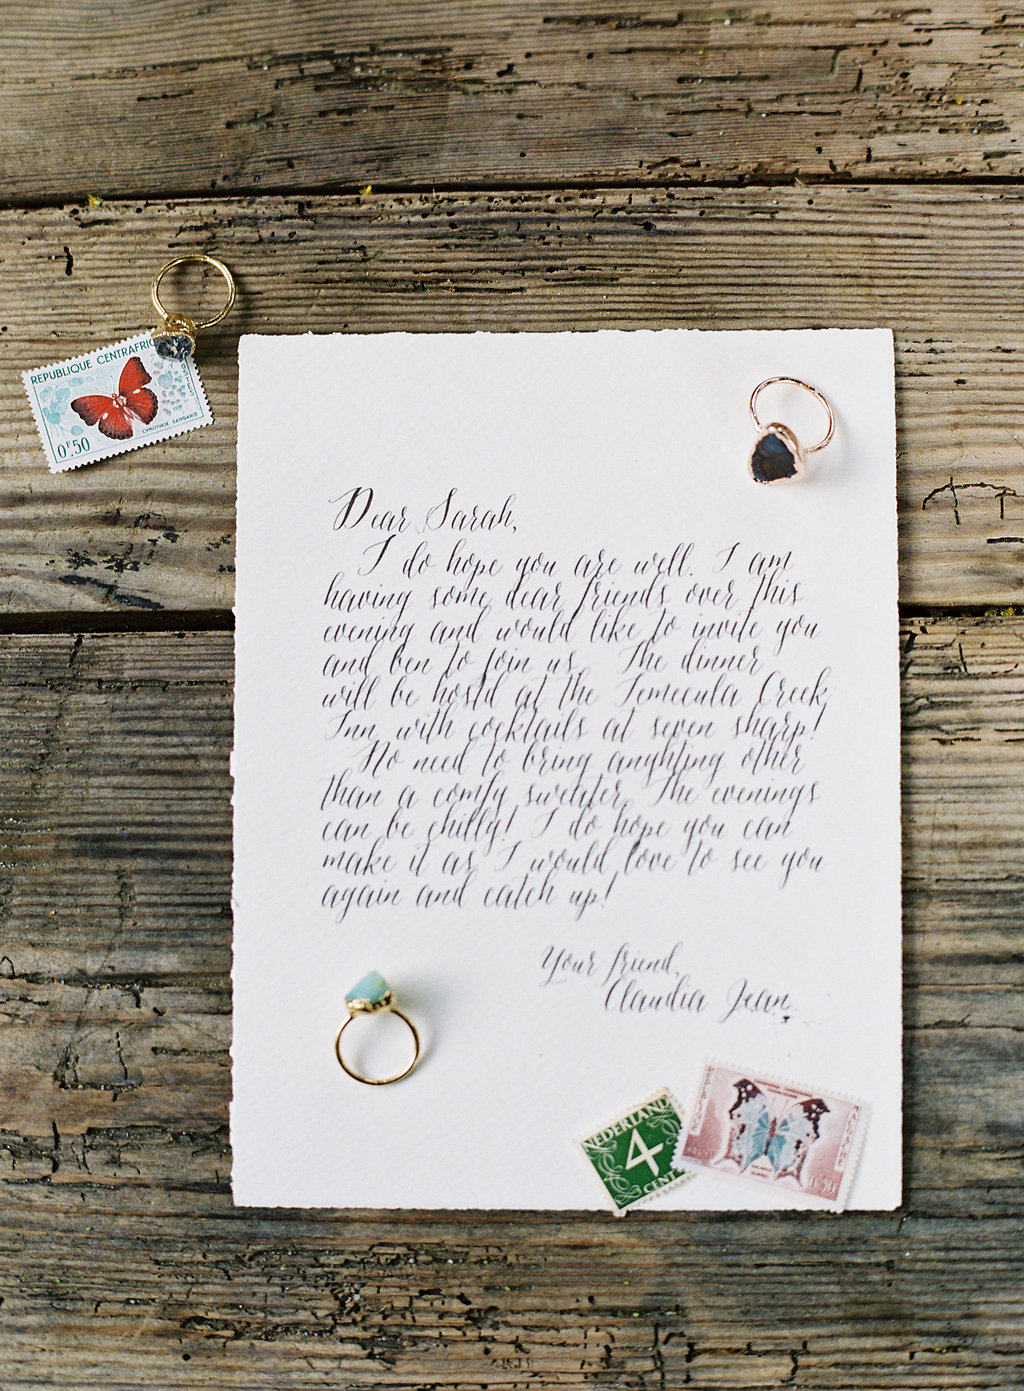 REPUBLIQUE CENTRAFRIC
CYMOTHOE SANGARIS
0F,50
Dear Sarah,
I do hope you are well. I am
having some dear friends over this
evening and would like to invite you
and ben to join us. The dinner
will be hostd at the Temecula Creek
Inn with cocktails at seven sharp!
No need to bring anyhting other
than a comfy sweater. The evenings
can be chilly! I do hope you can
make it as I would love to see you
again and catch up!
Your friend,
Claudia Jean
NEDERLAND
4
CENT
0F,50